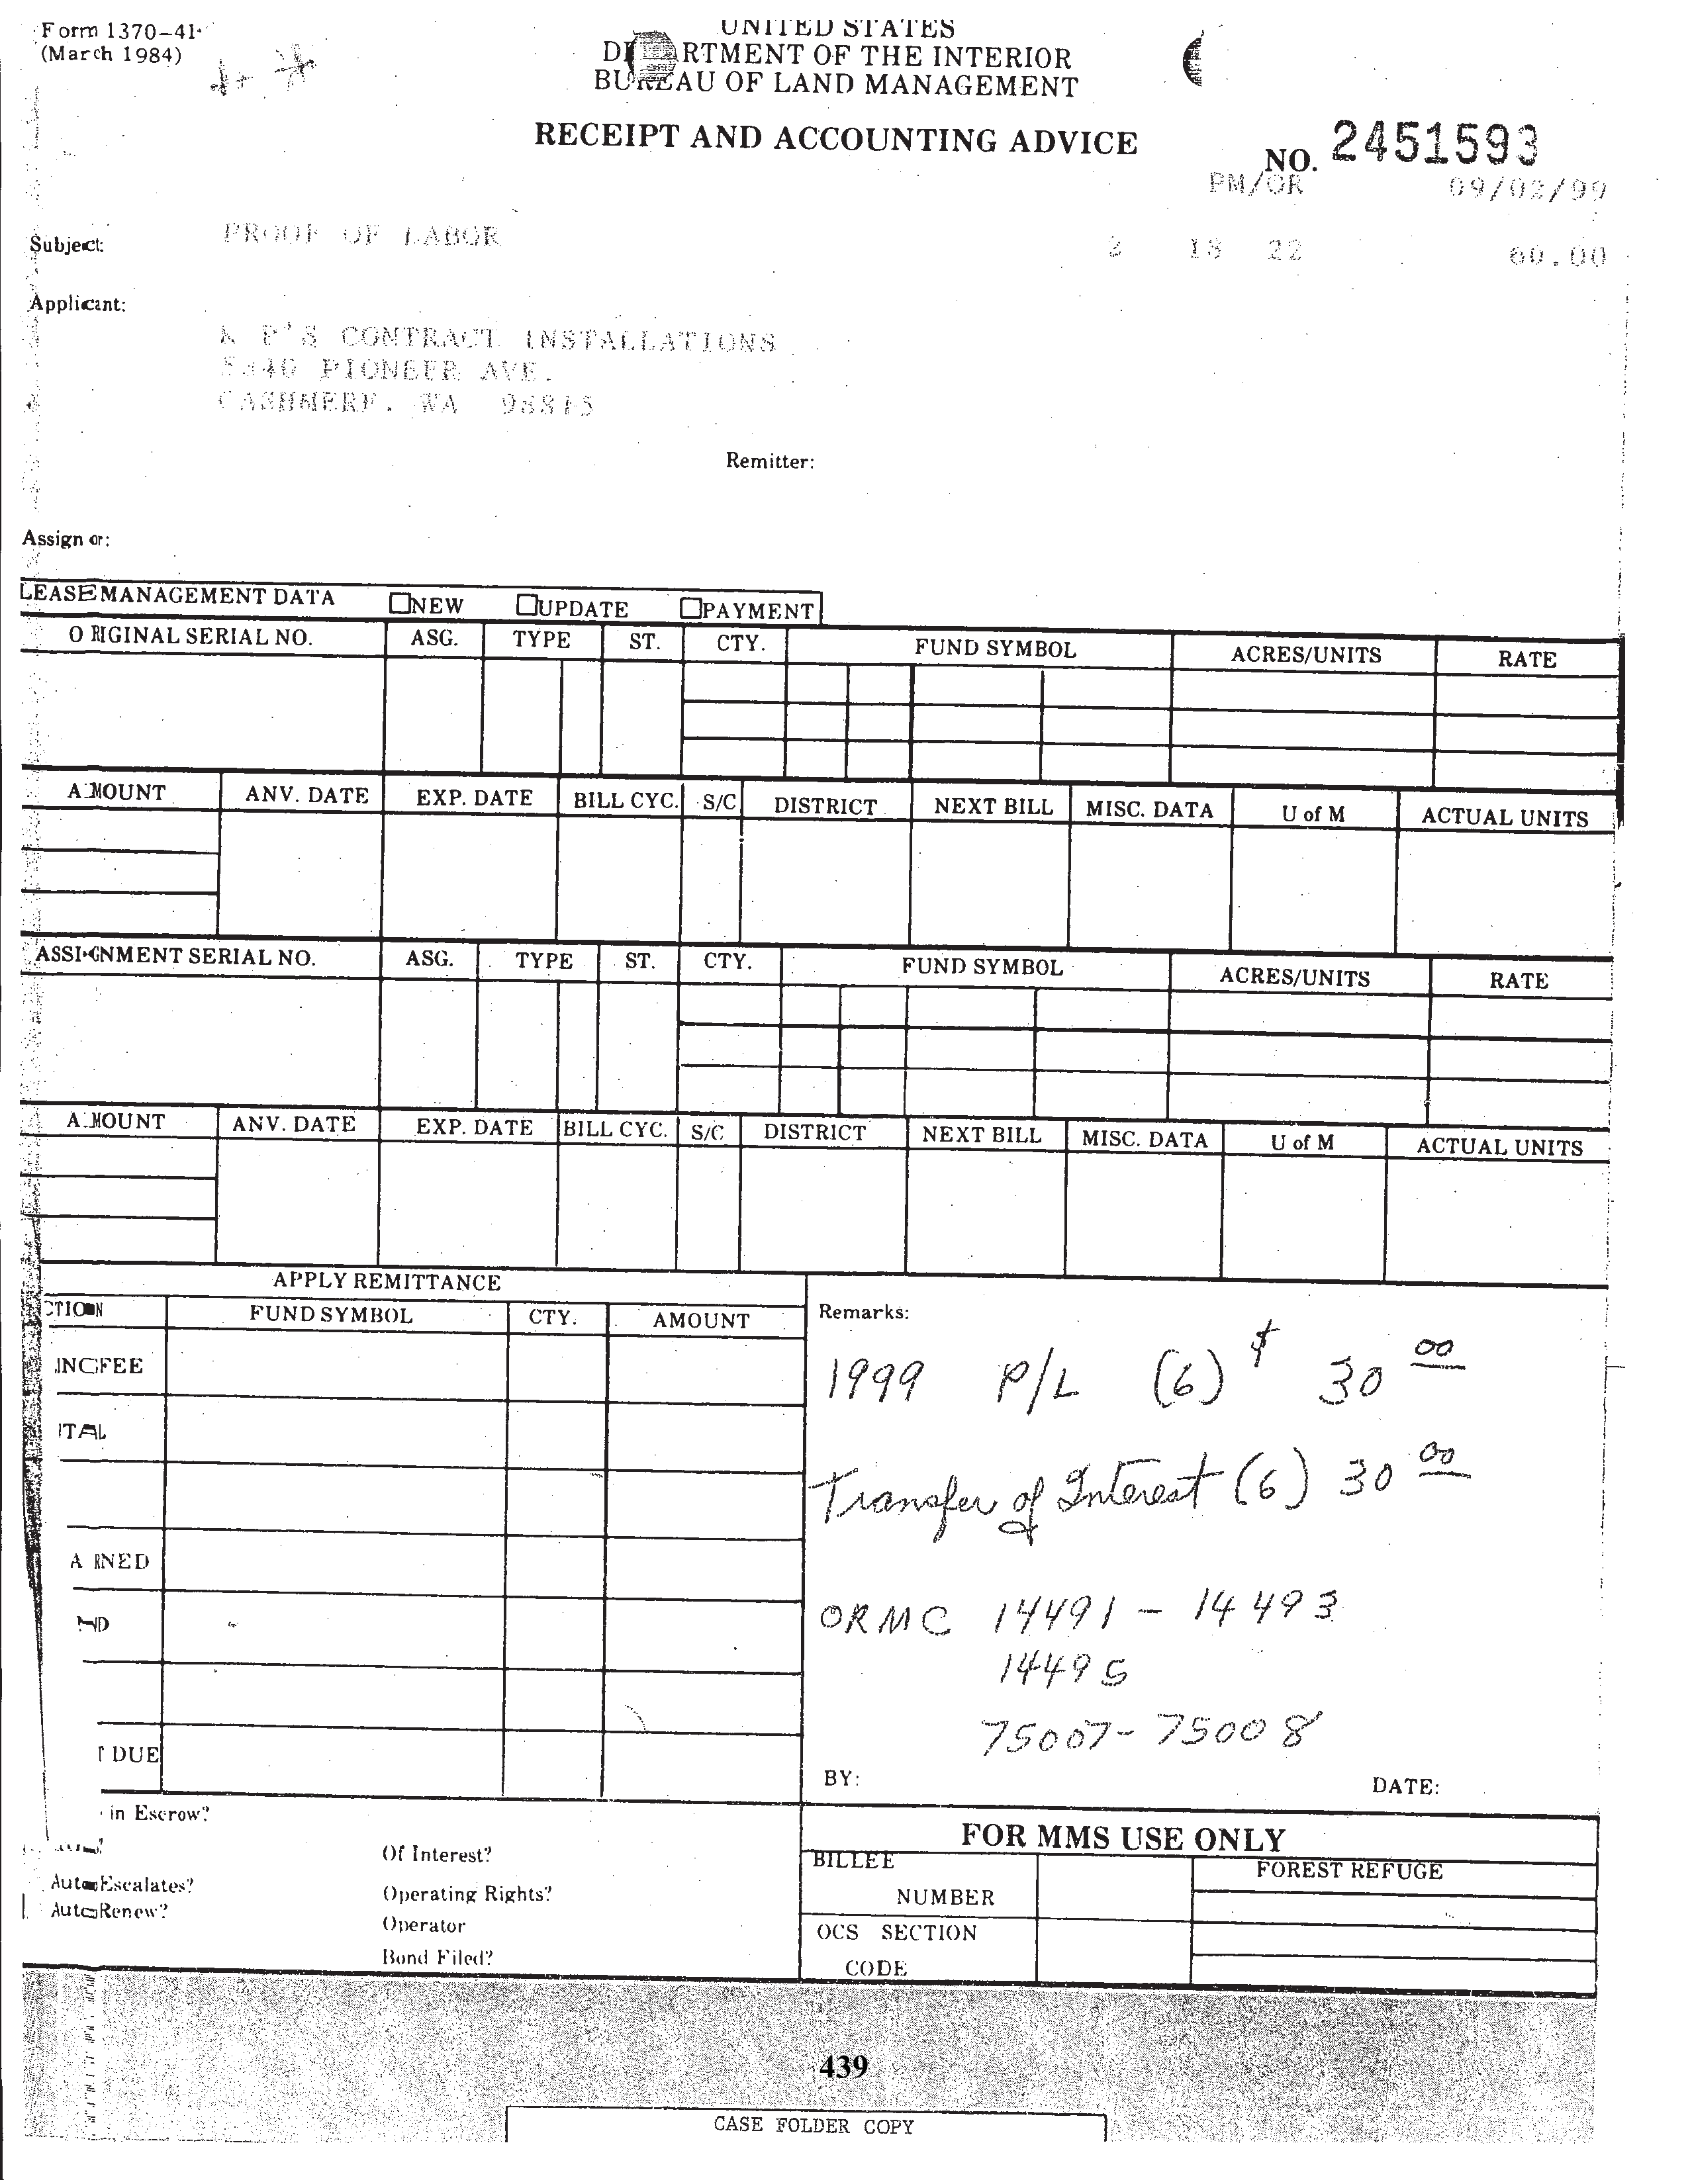 Form 1370-41
(March 1984)
UNITED STATES
DEPARTMENT OF THE INTERIOR
BUREAU OF LAND MANAGEMENT
RECEIPT AND ACCOUNTING ADVICE
NO. 2451593
PM/OR 09/02/99
Subject: PROOF OF LABOR
2 18 22 60.00
Applicant:
K P'S CONTRACT INSTALLATIONS
PIONEER AVE.
CASHMERE, WA 98815
Remitter:
Assignor:
LEASE MANAGEMENT DATA NEW UPDATE PAYMENT
ORIGINAL SERIAL NO. ASG. TYPE ST. CTY. FUND SYMBOL ACRES/UNITS RATE
AMOUNT ANV. DATE EXP. DATE BILL CYC. S/C DISTRICT NEXT BILL MISC. DATA U of M ACTUAL UNITS
ASSIGNMENT SERIAL NO. ASG. TYPE ST. CTY. FUND SYMBOL ACRES/UNITS RATE
AMOUNT ANV. DATE EXP. DATE BILL CYC. S/C DISTRICT NEXT BILL MISC. DATA U of M ACTUAL UNITS
APPLY REMITTANCE
CTION FUND SYMBOL CTY. AMOUNT
ING FEE
ITAL
ARNED
ND
T DUE
Remarks:
1999 P/L (6) $ 30 00
Transfer of Interest (6) 30 00
ORMC 14491 - 14493
14495
75007 - 75008
BY: DATE:
in Escrow?
Of Interest?
Auto Escalates? Operating Rights?
Auto Renew?
Operator
Bond Filed?
FOR MMS USE ONLY
BILLEE
NUMBER
FOREST REFUGE
OCS SECTION
CODE
439
CASE FOLDER COPY